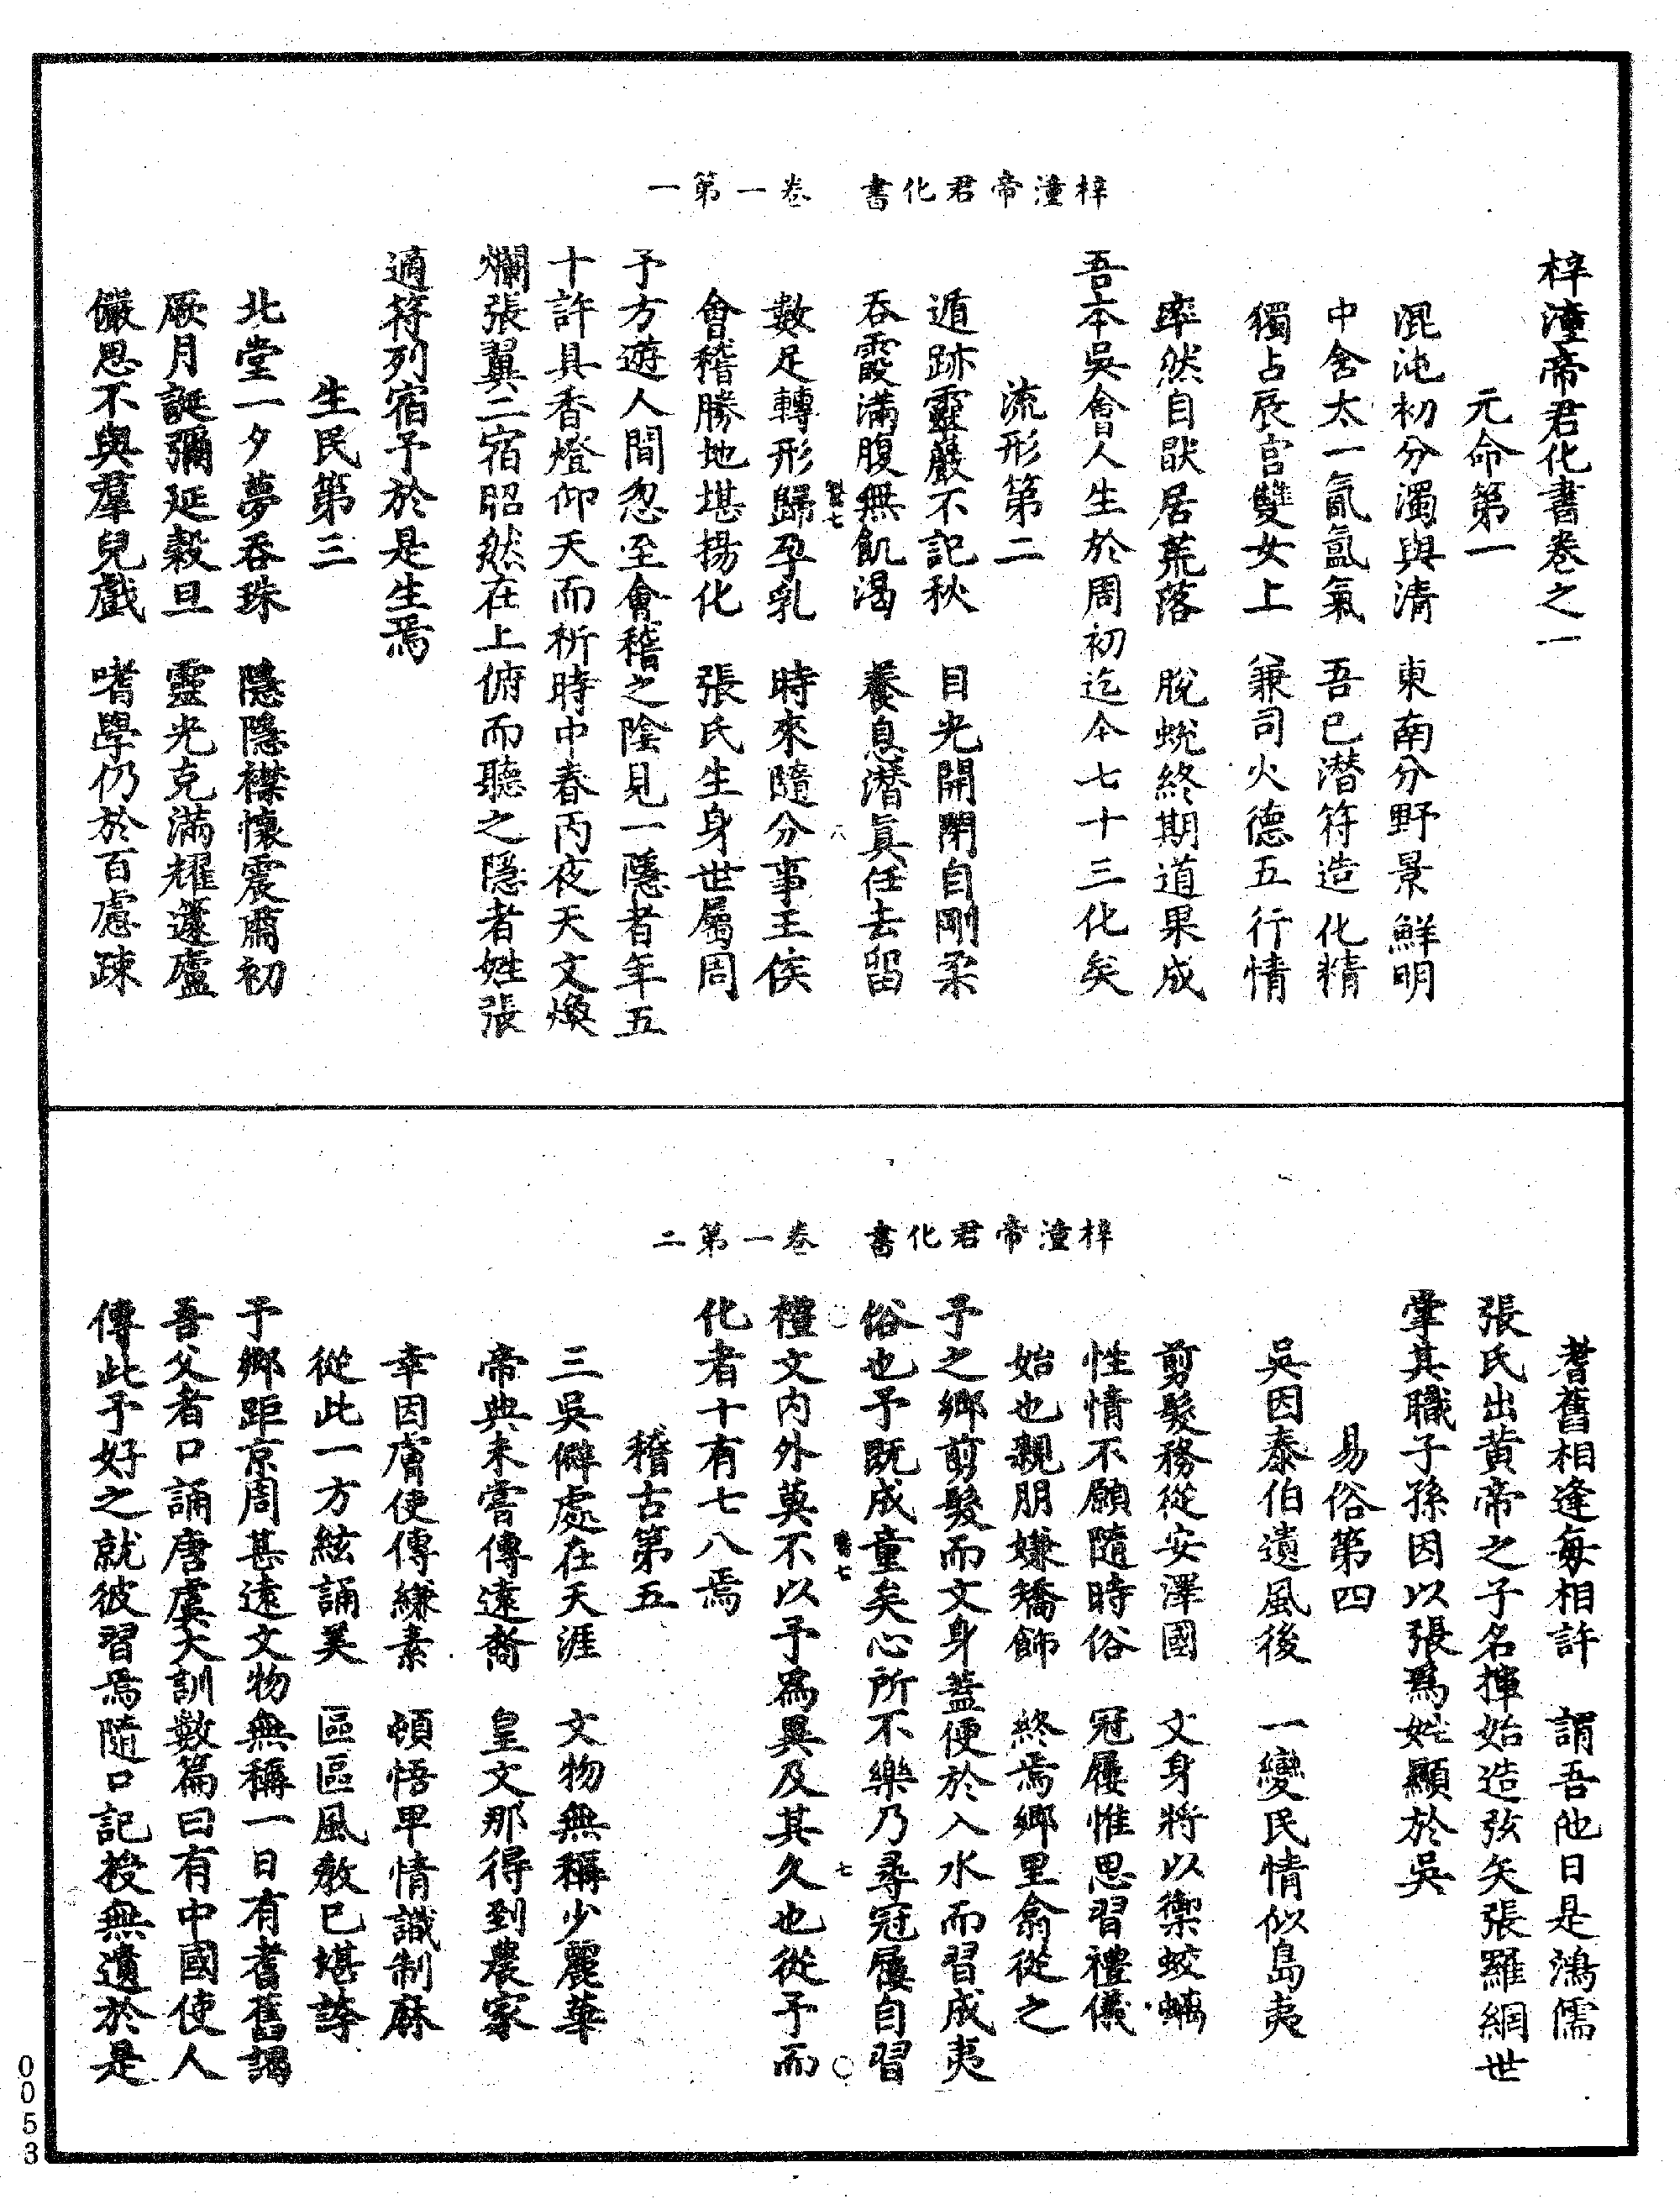 梓潼帝君化書　卷一第一
梓潼帝君化書卷之一
元命第一
混沌初分濁與清　東南分野景鮮明
中含太一氤氳氣　吾已潜符造化精
獨占辰宫雙女上　兼司火德五行情
率然自猒居荒落　脫蛻終期道果成
吾本吳會人生於周初迄今七十三化矣
流形第二
遁跡靈巖不記秋　目光開闔自剛柔
吞霞滿腹無飢渴　養息潜眞任去留
數足轉形歸孕乳　時來隨分事王侯
會稽勝地堪揚化　張氏生身世屬周
予方遊人間忽至會稽之陰見一隱者年五
十許具香燈仰天而祈時中春丙夜天文煥
爛張翼二宿昭然在上俯而聽之隱者姓張
適符列宿予於是生焉
生民第三
北堂一夕夢吞珠　隱隱襟懷震肅初
厥月誕彌延穀旦　靈光克滿耀蘧廬
儼思不與羣兒戲　嗜學仍於百慮疎
梓潼帝君化書　卷一第二
耆舊相逢每相許　謂吾他日是鴻儒
張氏出黄帝之子名揮始造弦矢張羅網世
掌其職子孫因以張爲姓顯於吳
易俗第四
吳因泰伯遺風後　一變民情似島夷
剪髮務從安澤國　文身將以禦蛟螭
性情不願隨時俗　冠屨惟思習禮儀
始也親朋嫌矯飾　終焉鄉里翕從之
予之鄉剪髮而文身蓋便於入水而習成夷
俗也予既成童矣心所不樂乃尋冠屨自習
禮文内外莫不以予爲異及其久也從予而
化者十有七八焉
稽古第五
三吳僻處在天涯　文物無稱少麗華
帝典未嘗傳遠裔　皇文那得到農家
幸因膚使傳縑素　頓悟甲情識制麻
從此一方絃誦美　區區風教已堪誇
予鄉距京周甚遠文物無稱一日有耆舊謁
吾父者口誦唐虞大訓數篇曰有中國使人
傳此予好之就彼習焉隨口記授無遺於是
0053